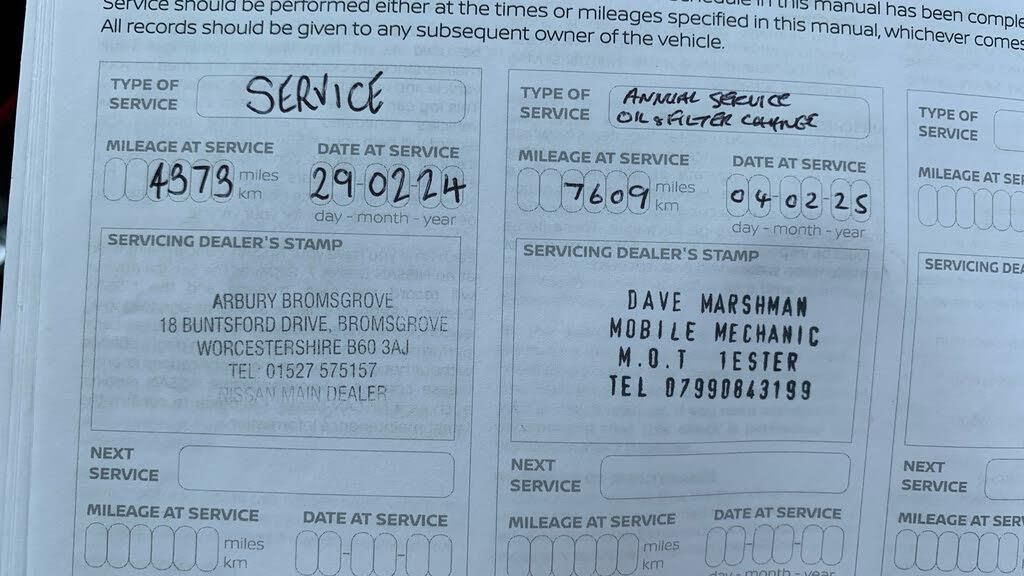 Service should be performed either at the times or mileages specified in this manual, whichever comes
All records should be given to any subsequent owner of the vehicle.
TYPE OF
SERVICE
SERVICE
MILEAGE AT SERVICE
DATE AT SERVICE
4373
miles
km
29-02-24
day - month - year
SERVICING DEALER'S STAMP
ARBURY BROMSGROVE
18 BUNTSFORD DRIVE, BROMSGROVE
WORCESTERSHIRE B60 3AJ
TEL: 01527 575157
NISSAN MAIN DEALER
NEXT
SERVICE
MILEAGE AT SERVICE
DATE AT SERVICE
miles
km
TYPE OF
SERVICE
ANNUAL SERVICE
OIL & FILTER CHANGE
MILEAGE AT SERVICE
DATE AT SERVICE
7609
miles
km
04-02-25
day - month - year
SERVICING DEALER'S STAMP
DAVE MARSHMAN
MOBILE MECHANIC
M.O.T TESTER
TEL 07990843199
NEXT
SERVICE
MILEAGE AT SERVICE
DATE AT SERVICE
miles
km
day - month - year
TYPE OF
SERVICE
MILEAGE AT SE
SERVICING DEA
NEXT
SERVICE
MILEAGE AT SER